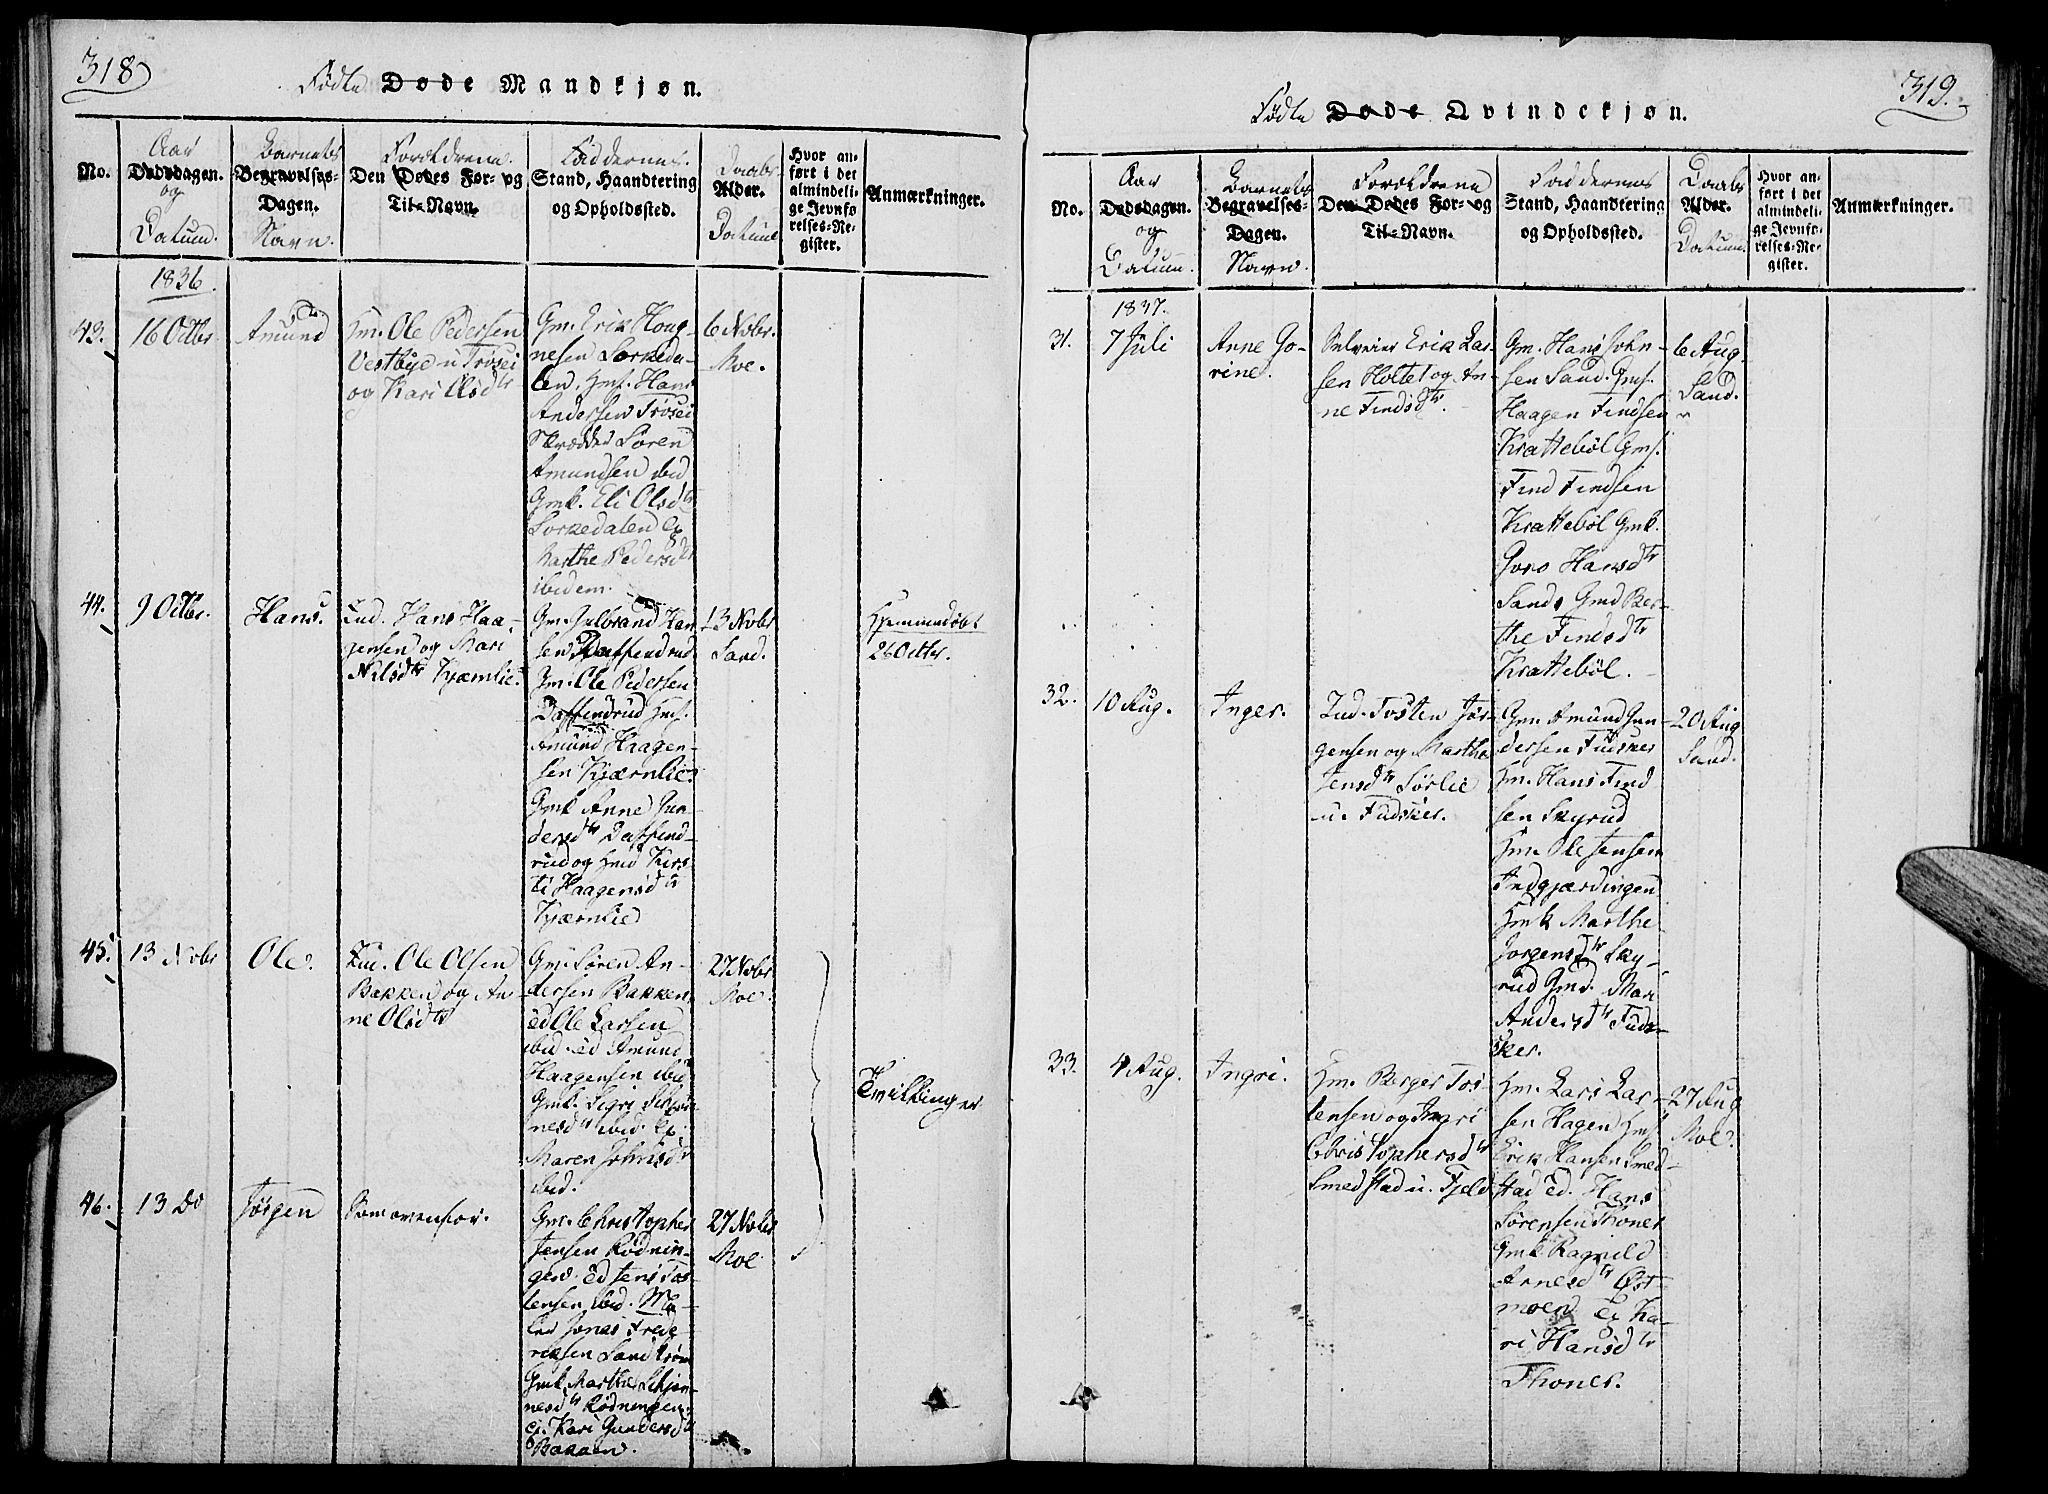 318
Fødte Døde Mandkjøn.
No.
Aar
Dødsdagen.
og
Datum.
Barnets
Begravelses-
Dagen.
Navn.
Foreldrene.
Den Dødes For- og
Til-Navn.
Faddernes.
Stand, Haandtering
og Opholdssted.
Daabs
Alder.
Datum
Hvor an-
ført i det
almindeli-
ge Jevnfø-
relses-Re-
gister.
Anmærkninger.
1836.
43.
16 Octbr.
Amund
Hm. Ole Pedersen
Vestbye u. Trøsei
og Kari Olsdtr
Gm. Erik Houg-
nesen Lorkeda-
len, Hms. Hans
Andersen Trøsei
Skrædder Søren
Amundsen ibid
Gmk. Eli Olsdtr
Lorkedalen &
Marthe Pedersdtr
ibidem.
6 Nobr.
Moe.
44.
9 Octbr.
Hans.
Ind. Hans Haa-
gensen og Mari
Nilsdtr Kjærnlie.
Gm. Gulbrand Han
sen Daffindrud
Gm. Ole Pedersen
Daffindrud Hms.
Amund Haagen-
sen Kjærnlie.
Gmk Anne Gun-
dersdtr Daffind-
rud og Hmd Kirs-
ti Haagensdtr
Kjærnlie
13 Nobr
Sand.
Hjemmedøbt
26 Octbr.
45.
13 Nobr
Ole.
Ole Olsen
Bakken og An-
ne Olsdtr
Gm. Søren An-
dersen Bakken,
ed Ole Larsen
ibid. ed Amund
Haagensen ibid
Gmk. Sigri
nesdtr ibid. &
Maren Johnsdtr
ibid.
27 Nobr
Moe.
Tvillinger
46.
13 Do
Jørgen
Som ovenfor.
Gm. Christopher
Jensen Rødnin-
gen. ed Jens Tos-
tensen ibid. Ma-
ler Jonas Frede-
riksen Sandstrøm
Gmk. Marthe
nesdtr Rødningen.
ej. Kari Gundersdtr
Bakken.
27 Nobr
Moe
319.
Fødte Døde Qvindekjøn.
No.
Aar
Dødsdagen.
og
Datum.
Barnets
Begravelses-
Dagen.
Navn.
Foreldrene
Den Dødes For- og
Til-Navn.
Faddernes
Stand, Haandtering
og Opholdssted.
Daabs
Alder.
Datum.
Hvor an-
ført i det
almindeli-
ge Jevnfø-
relses-Re-
gister.
Anmærkninger.
1837.
31.
7 Juli
Anne Go-
rine.
Selveier Erik Lar-
sen Holtet og An-
ne Findsdtr.
Gm. Hans John-
sen Sand. Gms.
Haagen Findsen
Kratteböl Gms.
Find Findsen
Kratteböl Gmk.
Goro Hansdtr
Sands Gmd Ber-
the Findsdtr
Kratteböl.
6 Aug.
Sand.
32.
10 Aug.
Inger.
Ind. Tosten Jør-
gensen og Marthe
Jensdtr Sørlie
u. Fudsker.
Gm. Amund Gun-
dersen Fudsker
Hm. Hans Find
sen Skyrud
Hm. Ole Jensen
Indgjærdingen
Hmk Marthe
Jorgensdtr Sky-
rud Gmd. Mari
Andersdtr Fuds-
ker.
20 Aug
Sand.
33.
4 Aug.
Ingri.
Hm. Berger Tos-
tensen og Ingri
Christophersdtr
Smedstad u. Fjeld
Hm. Lars Lar-
sen Hagen Hms
Erik Hansen Smed-
stad Ed. Hans
Sørensen Thoner
Gmk Ragnild
Arnesdtr Øst-
moen & Ka-
ri Hansdtr
Thoner.
27 Aug
Moe.